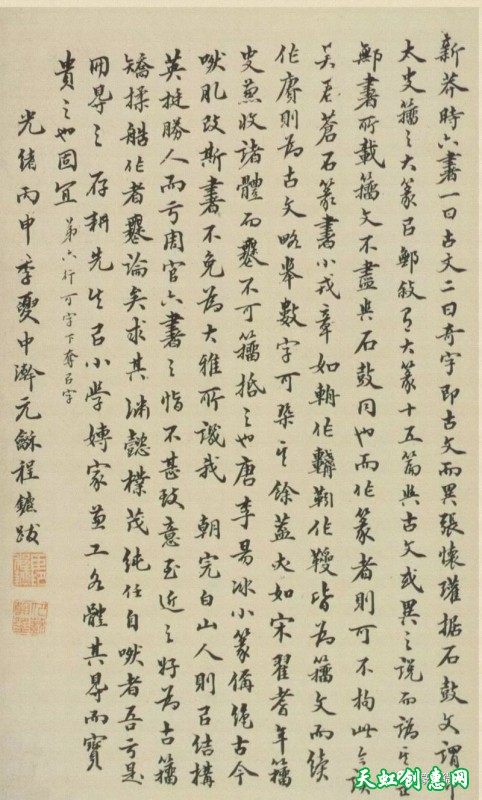 新莽時六書一曰古文二曰奇字即古文而異張懷瓘据石鼓文謂即
太史籀之大篆㠯鄦敘有大篆十五篇與古文或異之說而謂
鄦書所載籀文不盡與石鼓同也而作篆者則可不拘此
吳君蒼石篆書小戎章如朝作鞹靷作皆為籀文而續
作賡則為古文略舉數字可槩其餘蓋亦如宋翟耆年籀
史兼收諸體而不可籀抵之也唐李易冰小篆偁絕古今
肰肌改斯書不免為大雅所譏我 朝完白山人則㠯結構
英挻勝人而于周官六書之恉不甚致意至近之好為古籀
矯揉皓作者論矣求其淵懿樸茂純任自肰者吾于是
冊㝵之 存耕先生㠯小學專家兼工各體其㝵而寶
貴之也固宜 第六行可字下奪㠯字
光緒丙申季夏中澣元龢程鑣跋
天虹创惠网